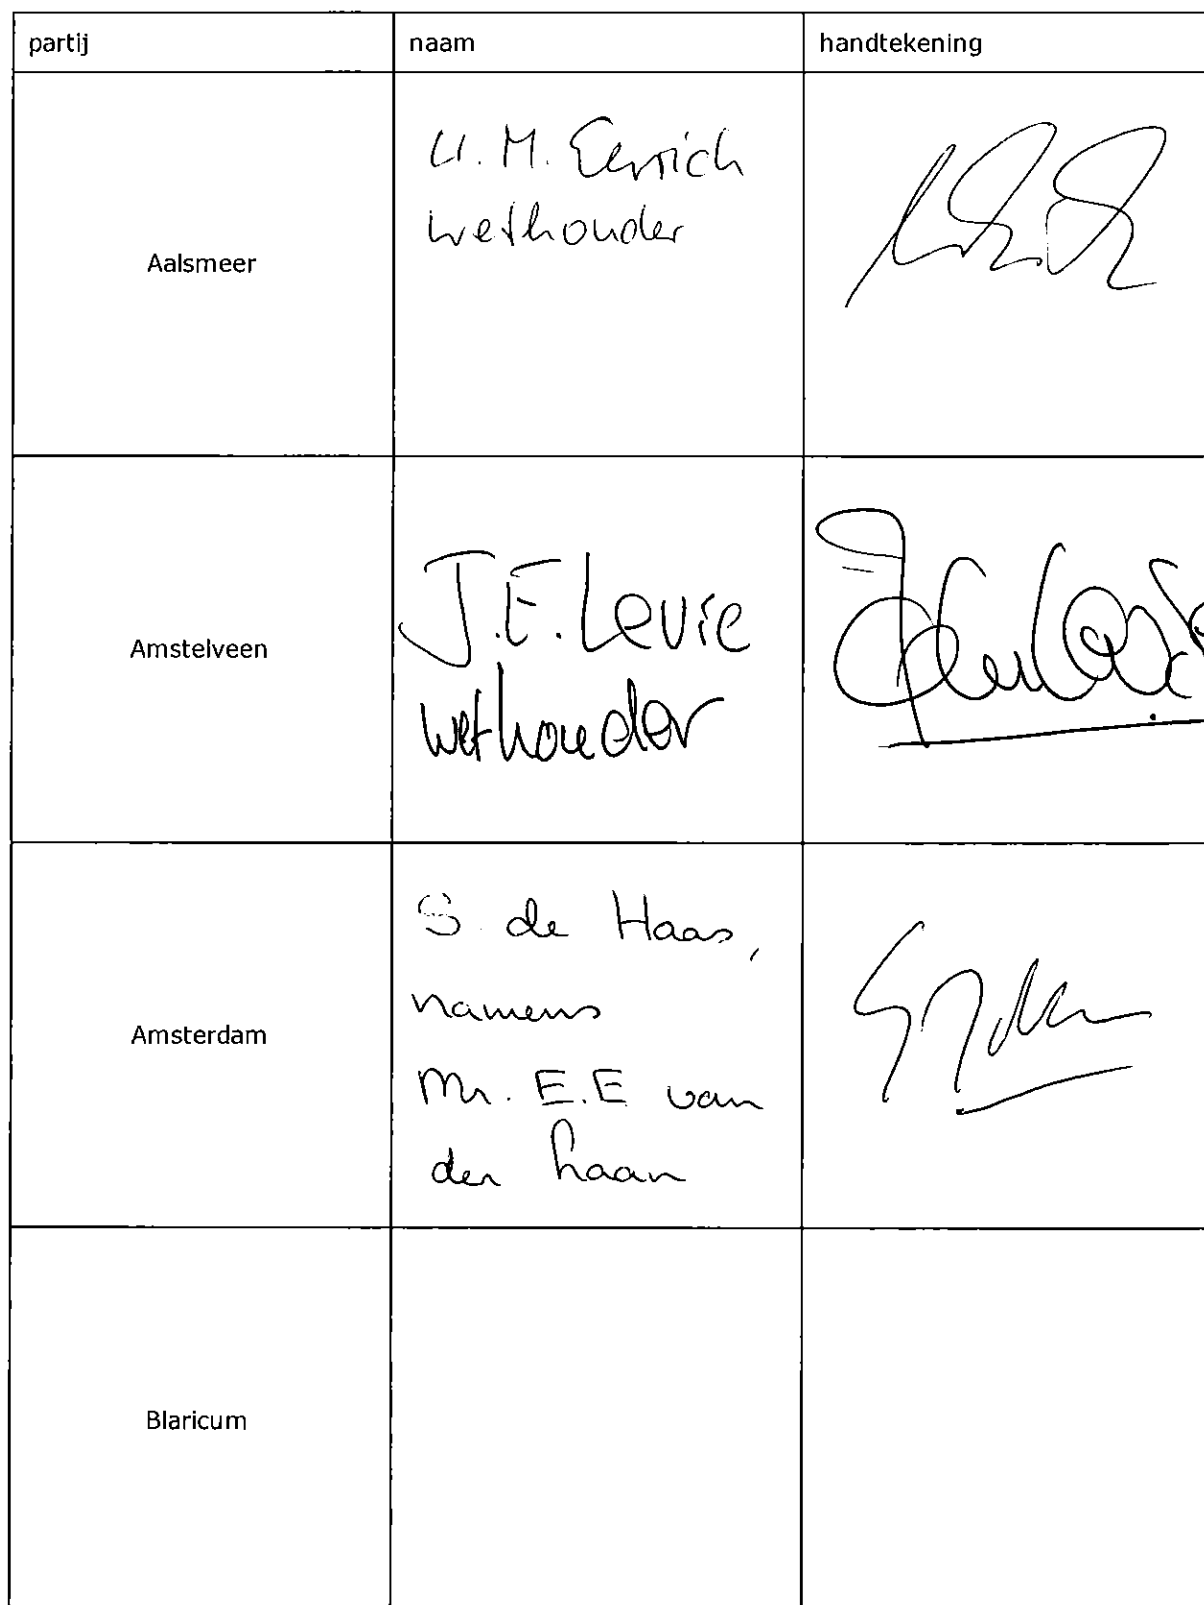 partij naam handtekening
Aalsmeer
U. M. Eerrich
wethouder
Amstelveen
J.E. Levie
wethouder
Amsterdam
S. de Haas,
namens
Mr. E.E van
der Laan
Blaricum